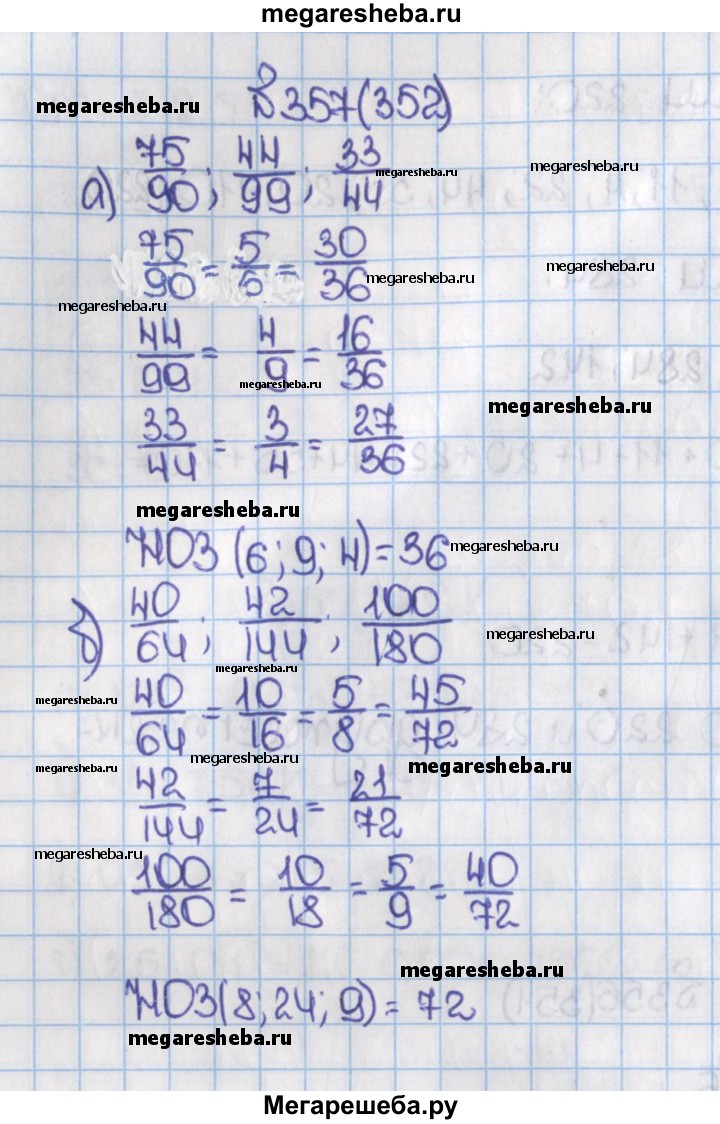 megaresheba.ru
№357(352)
megaresheba.ru
а) 75/90; 44/99; 33/44
megaresheba.ru
megaresheba.ru
75/90 = 5/6 = 30/36
megaresheba.ru
megaresheba.ru
megaresheba.ru
44/99 = 4/9 = 16/36
megaresheba.ru
megaresheba.ru
33/44 = 3/4 = 27/36
megaresheba.ru
НОЗ (6; 9; 4) = 36
megaresheba.ru
б) 40/64; 42/144; 100/180
megaresheba.ru
megaresheba.ru
40/64 = 10/16 = 5/8 = 45/72
megaresheba.ru
megaresheba.ru
megaresheba.ru
megaresheba.ru
42/144 = 7/24 = 21/72
megaresheba.ru
100/180 = 10/18 = 5/9 = 40/72
megaresheba.ru
НОЗ(8; 24; 9) = 72
megaresheba.ru
Мегарешеба.ру